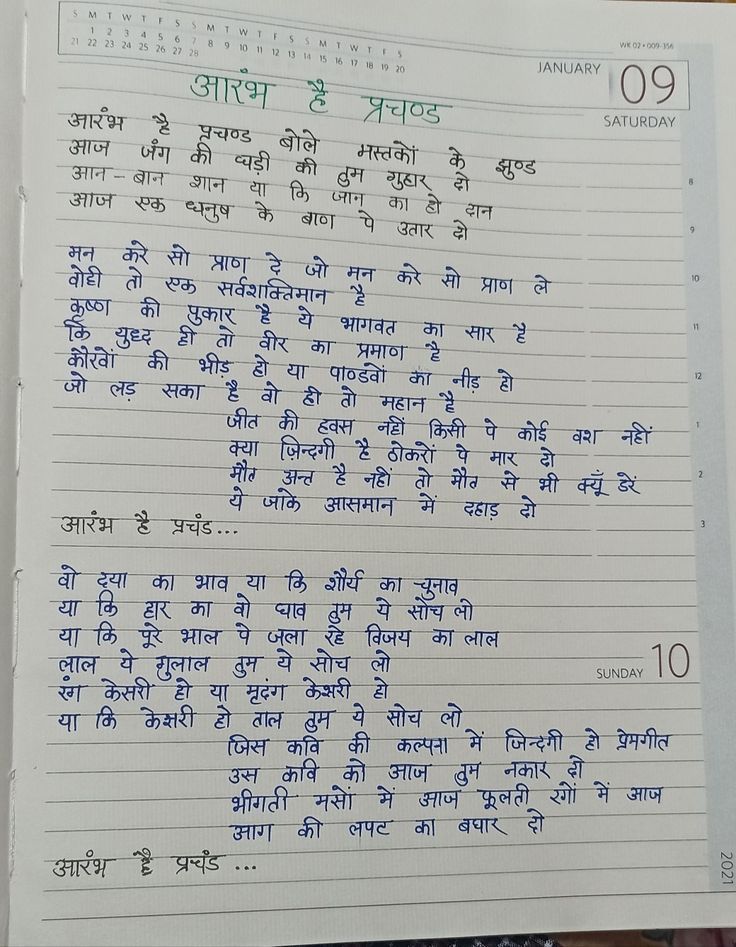 S M T W T F S S M T W T F S S M T W T F S
1 2 3 4 5 6 7 8 9 10 11 12 13 14 15 16 17 18 19 20
21 22 23 24 25 26 27 28
WK 02 • 009-356
JANUARY 09
SATURDAY
आरंभ है प्रचण्ड
आरंभ है प्रचण्ड बोले मस्तकों के झुण्ड
आज जंग की घड़ी की तुम गुहार दो
आन - बान शान या कि जान का हो दान
आज एक धनुष के बाण पे उतार दो
मन करे सो प्राण दे जो मन करे सो प्राण ले
वोही तो एक सर्वशक्तिमान है
कृष्ण की पुकार है ये भागवत का सार है
कि युद्द ही तो वीर का प्रमाण है
कौरवों की भीड़ हो या पाण्डवों का नीड़ हो
जो लड़ सका है वो ही तो महान है
जीत की हवस नहीं किसी पे कोई वश नहीं
क्या ज़िन्दगी है ठोकरों पे मार दो
मौत अन्त है नहीं तो मौत से भी क्यूँ डरें
ये जाके आसमान में दहाड़ दो
आरंभ है प्रचंड...
वो दया का भाव या कि शौर्य का चुनाव
या कि हार का वो घाव तुम ये सोच लो
या कि पूरे भाल पे जला रहे विजय का लाल
लाल ये गुलाल तुम ये सोच लो
रंग केसरी हो या मृदंग केशरी हो
या कि केशरी हो ताल तुम ये सोच लो
जिस कवि की कल्पना में जिन्दगी हो प्रेमगीत
उस कवि को आज तुम नकार दो
भीगती मसों में आज फूलती रगों में आज
आग की लपट का बघार दो
आरंभ है प्रचंड ...
8
9
10
11
12
1
2
3
SUNDAY 10
2021